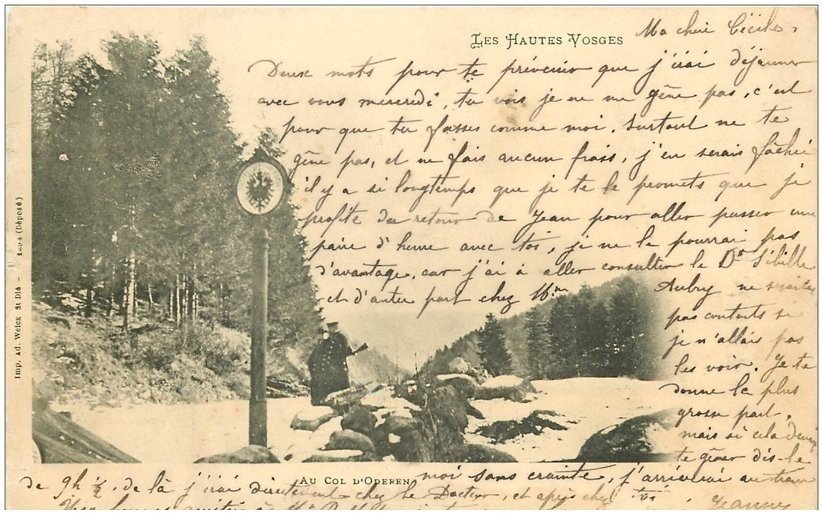 LES HAUTES VOSGES
Ma chère Cécile,
Deux mots pour te prévenir que j'irai déjeuner
avec vous mercredi, tu vois je ne me gêne pas, c'est
pour que tu fasses comme moi. Surtout ne te
gêne pas, et ne fais aucun frais, j'en serais fâchée
il y a si longtemps que je te le promets que je
profite du retour de Jean pour aller passer une
paire d'heure avec toi, je ne le pourrai pas
d'avantage, car j'ai à aller consulter le Dr
et d'autre part chez Mme
Aubry ne seraient
pas contents si
je n'allais pas
les voir. Je te
donne le plus
grosse part,
mais si cela devait
te gêner dis-le
moi sans crainte, j'arriverai au train
de 9h ½, de là j'irai directement chez le Docteur, et après chez toi
AU COL D'ODEREN
Imp. Ad. Weick St Dié - (Déposé)